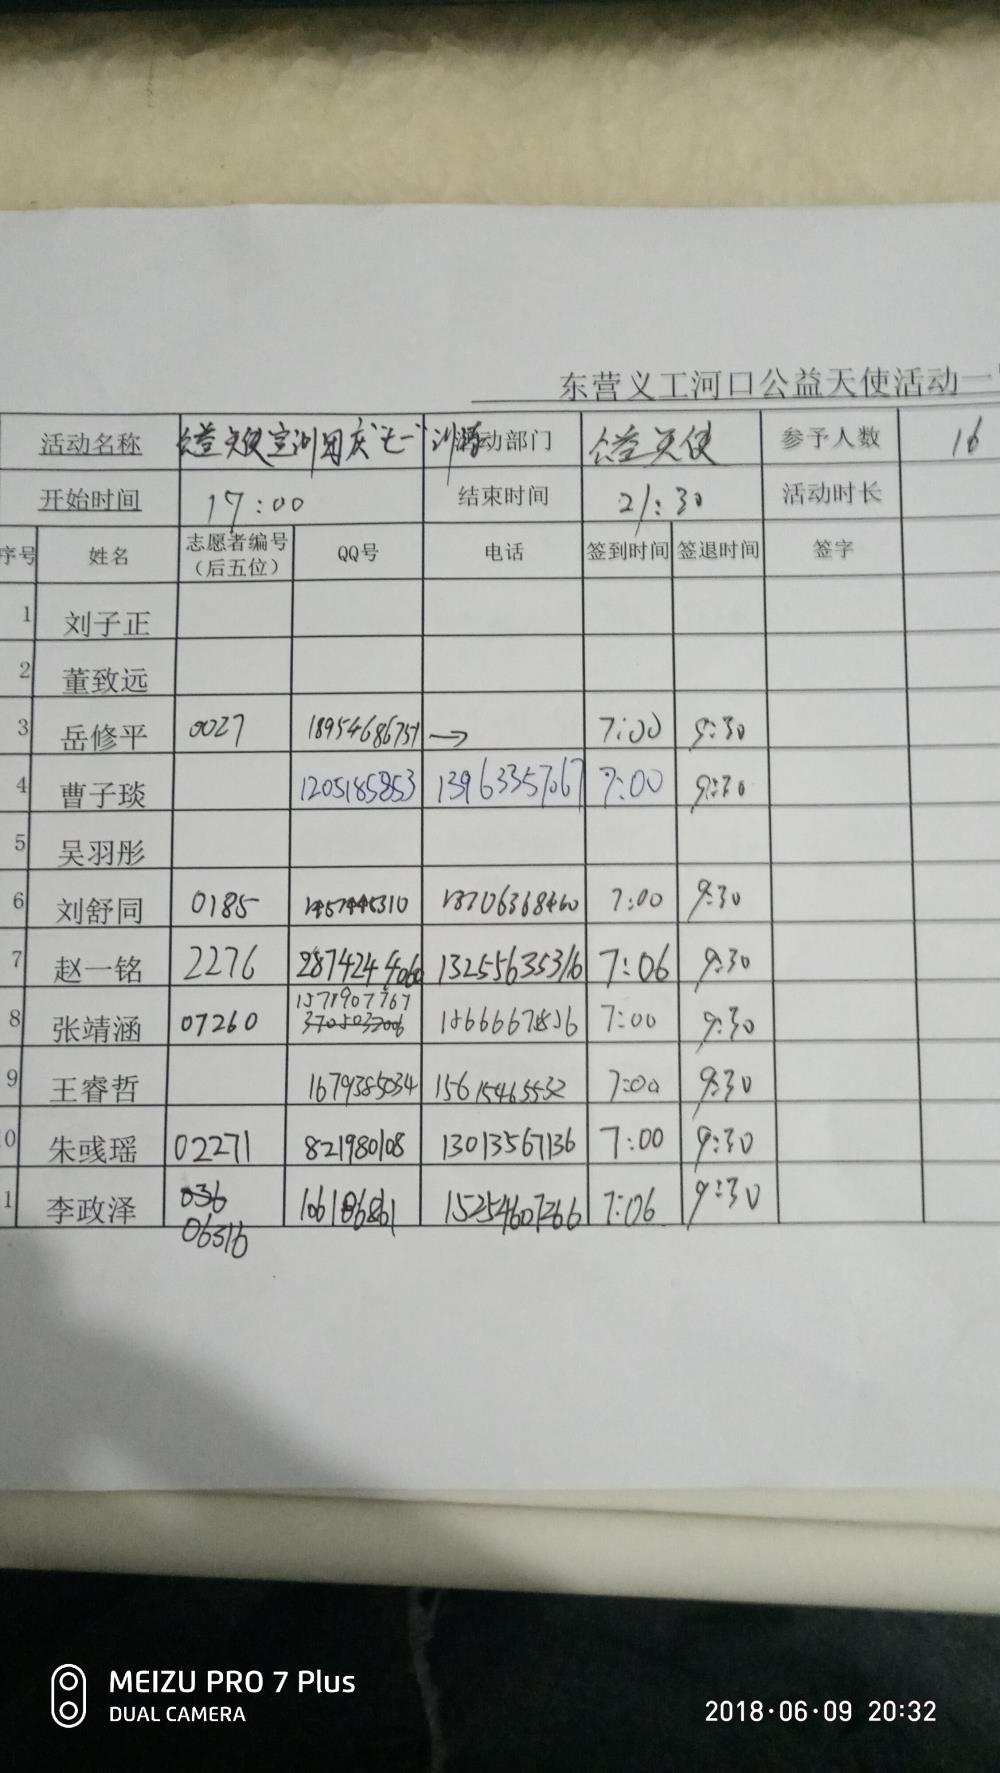 东营义工河口公益天使活动一
活动名称 公益天使定训国庆"七一" 活动部门 公益天使 参予人数 16
开始时间 17:00 结束时间 21:30 活动时长
序号 姓名 志愿者编号（后五位） QQ号 电话 签到时间 签退时间 签字
1 刘子正
2 董致远
3 岳修平 0027 18954686751 → 7:00 9:30
4 曹子琰 1205185853 13963357067 7:00 9:30
5 吴羽彤
6 刘舒同 0185 18706368460 7:00 9:30
7 赵一铭 2276 2874244060 13255635316 7:06 9:30
8 张靖涵 07260 1571907767 7:00 9:30
9 王睿哲 1679385034 15615465532 7:00 9:30
10 朱彧瑶 02271 821980108 13013567136 7:00 9:30
1 李政泽 036 15254607266 7:06 9:30
06316
MEIZU PRO 7 Plus
DUAL CAMERA
2018·06·09 20:32